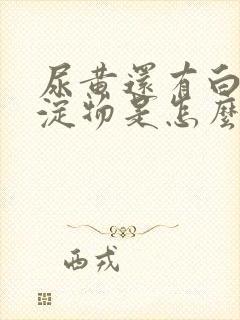 尿黃還有白
淀物是怎麼
西戎